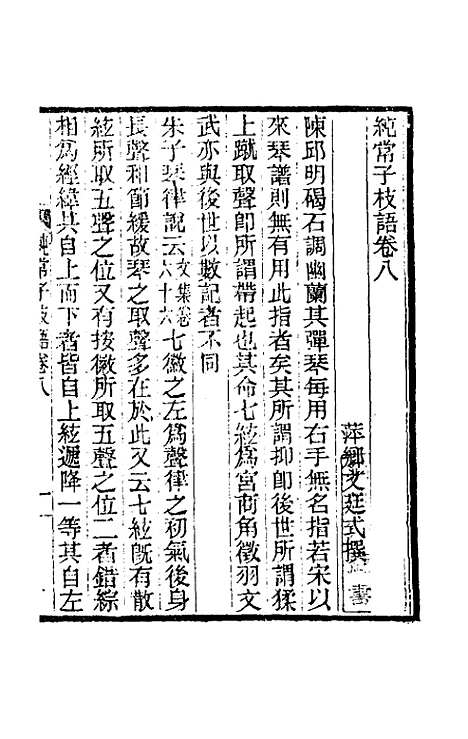 純常子枝語卷八
萍鄉文廷式撰
陳邱明碣石調幽蘭其彈琴每用右手無名指若宋以
來琴譜則無有用此指者矣其所謂抑即後世所謂猱
上蹴取聲即所謂帶起也其命七絃爲宮商角徵羽文
武亦與後世以數記者不同
朱子琴律說云文集卷六十六七徽之左爲聲律之初氣後身
長聲和節緩故琴之取聲多在於此又云七絃旣有散
絃所取五聲之位又有按徽所取五聲之位二者錯綜
相爲經緯其自上而下者皆自上絃遞降一等其自左
純常子枝語卷八
一